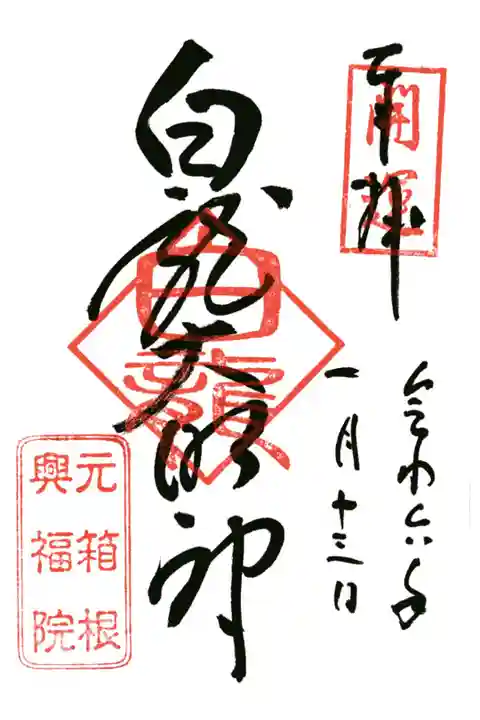 奉拝
開運
令和六年
一月十三日
白龍大明神
白龍
元箱根
興福院